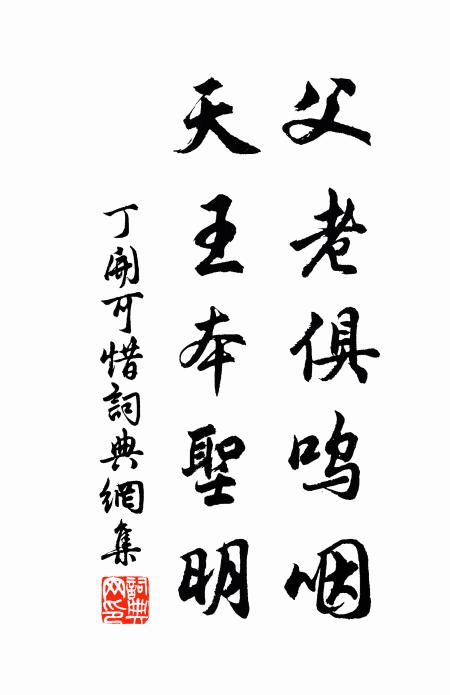 父老俱鸣咽
天王本聖明
丁開可惜詞典網集
詞典網印